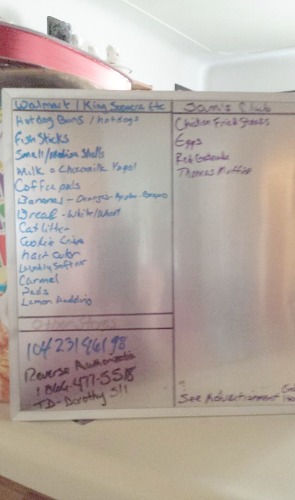 Walmart / King Soopers Etc
Hotdog Buns / hotdogs
Fish Sticks
Small/Medium Shells
Milk = Chocomilk
Coffee pods
Bananas - Oranges - Apples - Grapes
Bread - White/Wheat
Cat litter
Cookie
hair color
Laundry Softner
Carmel
Pads
Lemon Pudding
Other Stores
104 231 961 98
Reverse Authorization
1 866-477-5518
TD - Dorothy S11
Sam's Club
Chicken Fried Steaks
Eggs
Thomas Muffins
See Advertisement